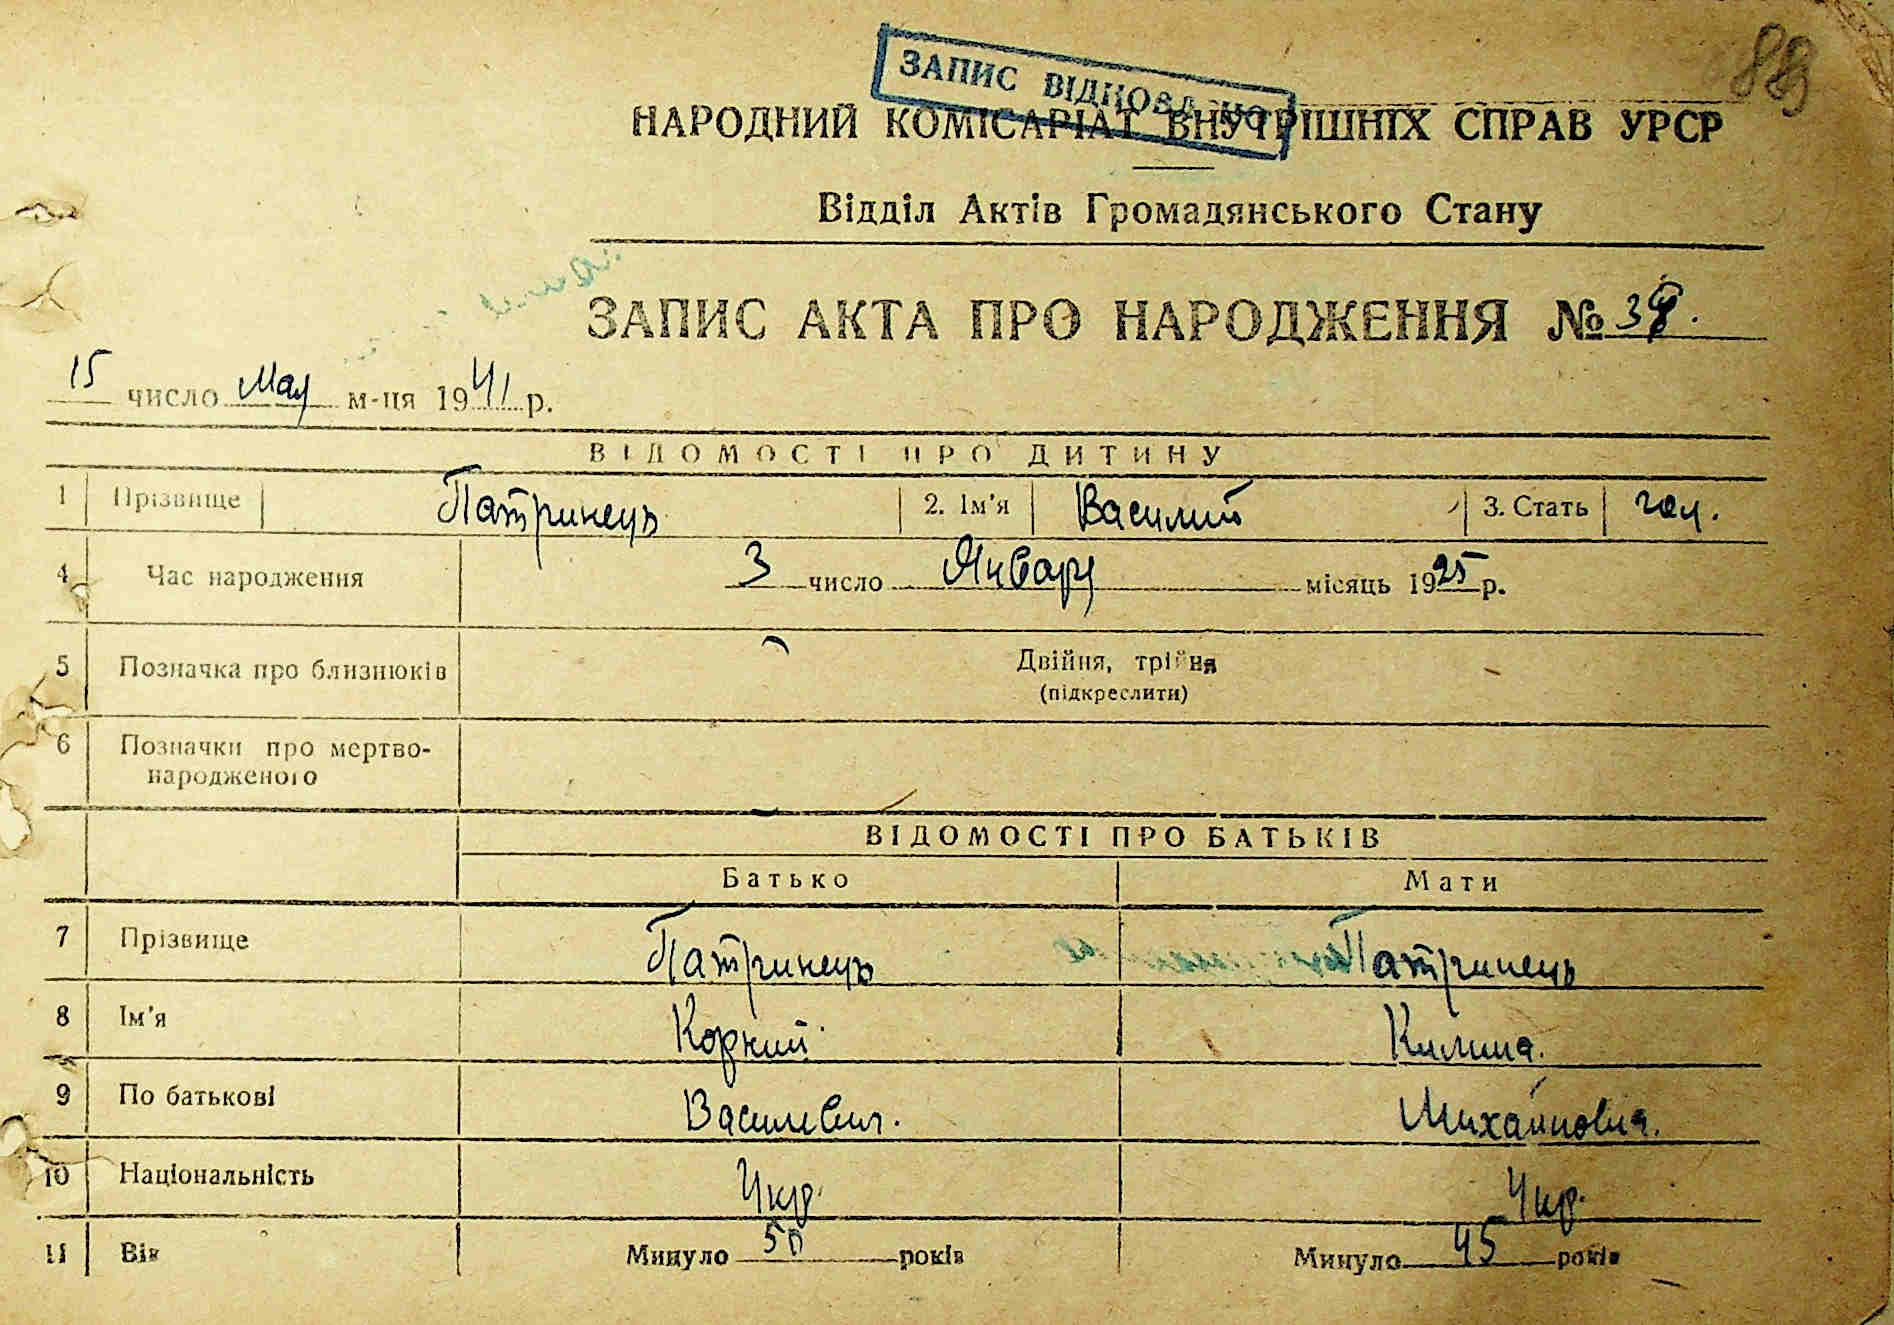 88
ЗАПИС ВІДНОВЛЕНО
НАРОДНИЙ КОМІСАРІАТ ВНУТРІШНІХ СПРАВ УРСР
Відділ Актів Громадянського Стану
ЗАПИС АКТА ПРО НАРОДЖЕННЯ № 38.
15 число Мая м-ця 1941 р.
ВІДОМОСТІ ПРО ДИТИНУ
1 Прізвище Патринець 2. Ім'я Василий 3. Стать чол.
4 Час народження 3 число Января місяць 1925 р.
5 Позначка про близнюків Двійня, трійня
(підкреслити)
6 Позначки про мертво-
народженого
ВІДОМОСТІ ПРО БАТЬКІВ
Батько Мати
7 Прізвище Патринець Патринець
8 Ім'я Корний Килина.
9 По батькові Василевич. Михайловна.
10 Національність Укр. Укр.
11 Вік Минуло 50 років Минуло 45 років